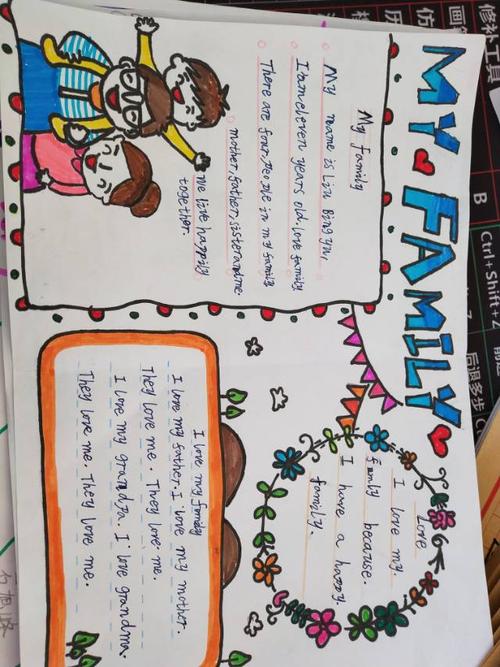 MY FAMILY
My family
My name is Liu Bingyu,
I am eleven years old. love family
There are four, people in my family
mother, father, sister and me.
We live happily
together.
Love
I love my.
family because.
I have a happy.
family.
I love my family
I love my father. I love my mother.
They love me. They love me.
I love my grandpa. I love grandma.
They love me. They love me.
修补工具
仿
画
历
B
Ctrl+Shift+Z
后退多步